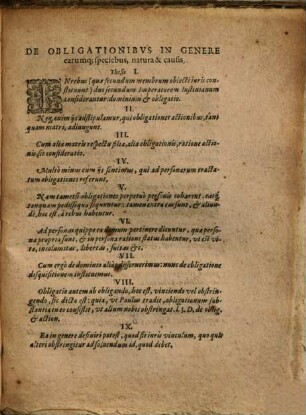 DE OBLIGATIONIBVS IN GENERE
earumq; speciebus, natura & causis,
Thesis I.
IN rebus (quæ secundum membrum obiecti iuris con-
stituunt) duo secundum Imperatorem Iustinianum
considerantur: dominium & obligatio.
II.
Neq; enim ijs adstipulamur, qui obligationes actionibus, tan-
quam matri, adiungunt.
III.
Cum alia matris respectu filiæ, alia obligationis, ratione actio-
nis sit consideratio.
IV.
Multò minus cum ijs sentimus, qui ad personarum tracta-
tum obligationes referunt.
V.
Nam tametsi obligationes perpetuò personis cohærent, easq;
tanquam pedissequæ sequuntur: tamen extra eas sunt, & aliun-
de, hoc est, à rebus habentur.
VI.
Ad personas quippe ea demum pertinere dicuntur, quæ perso-
næ propria sunt, & in persona ratione status habentur, vt est vi-
ta, incolumitas, libertas, fuitas &c.
VII.
Cum ergo de dominio aliàs disseruerimus: nunc de obligatione
disquisitionem instituemus.
VIII.
Obligatio autem ab obligando, hoc est, vinciendo vel obstrin-
gendo, sic dicta est: quia, vt Paulus tradit, obligationum sub-
stantia in eo consistit, vt alium nobis obstringat. l. 3. D. de oblig.
& action.
IX.
Ea in genere definiri potest, quod sit iuris vinculum, quo quis
alteri obstringitur ad soluendum id, quod debet,